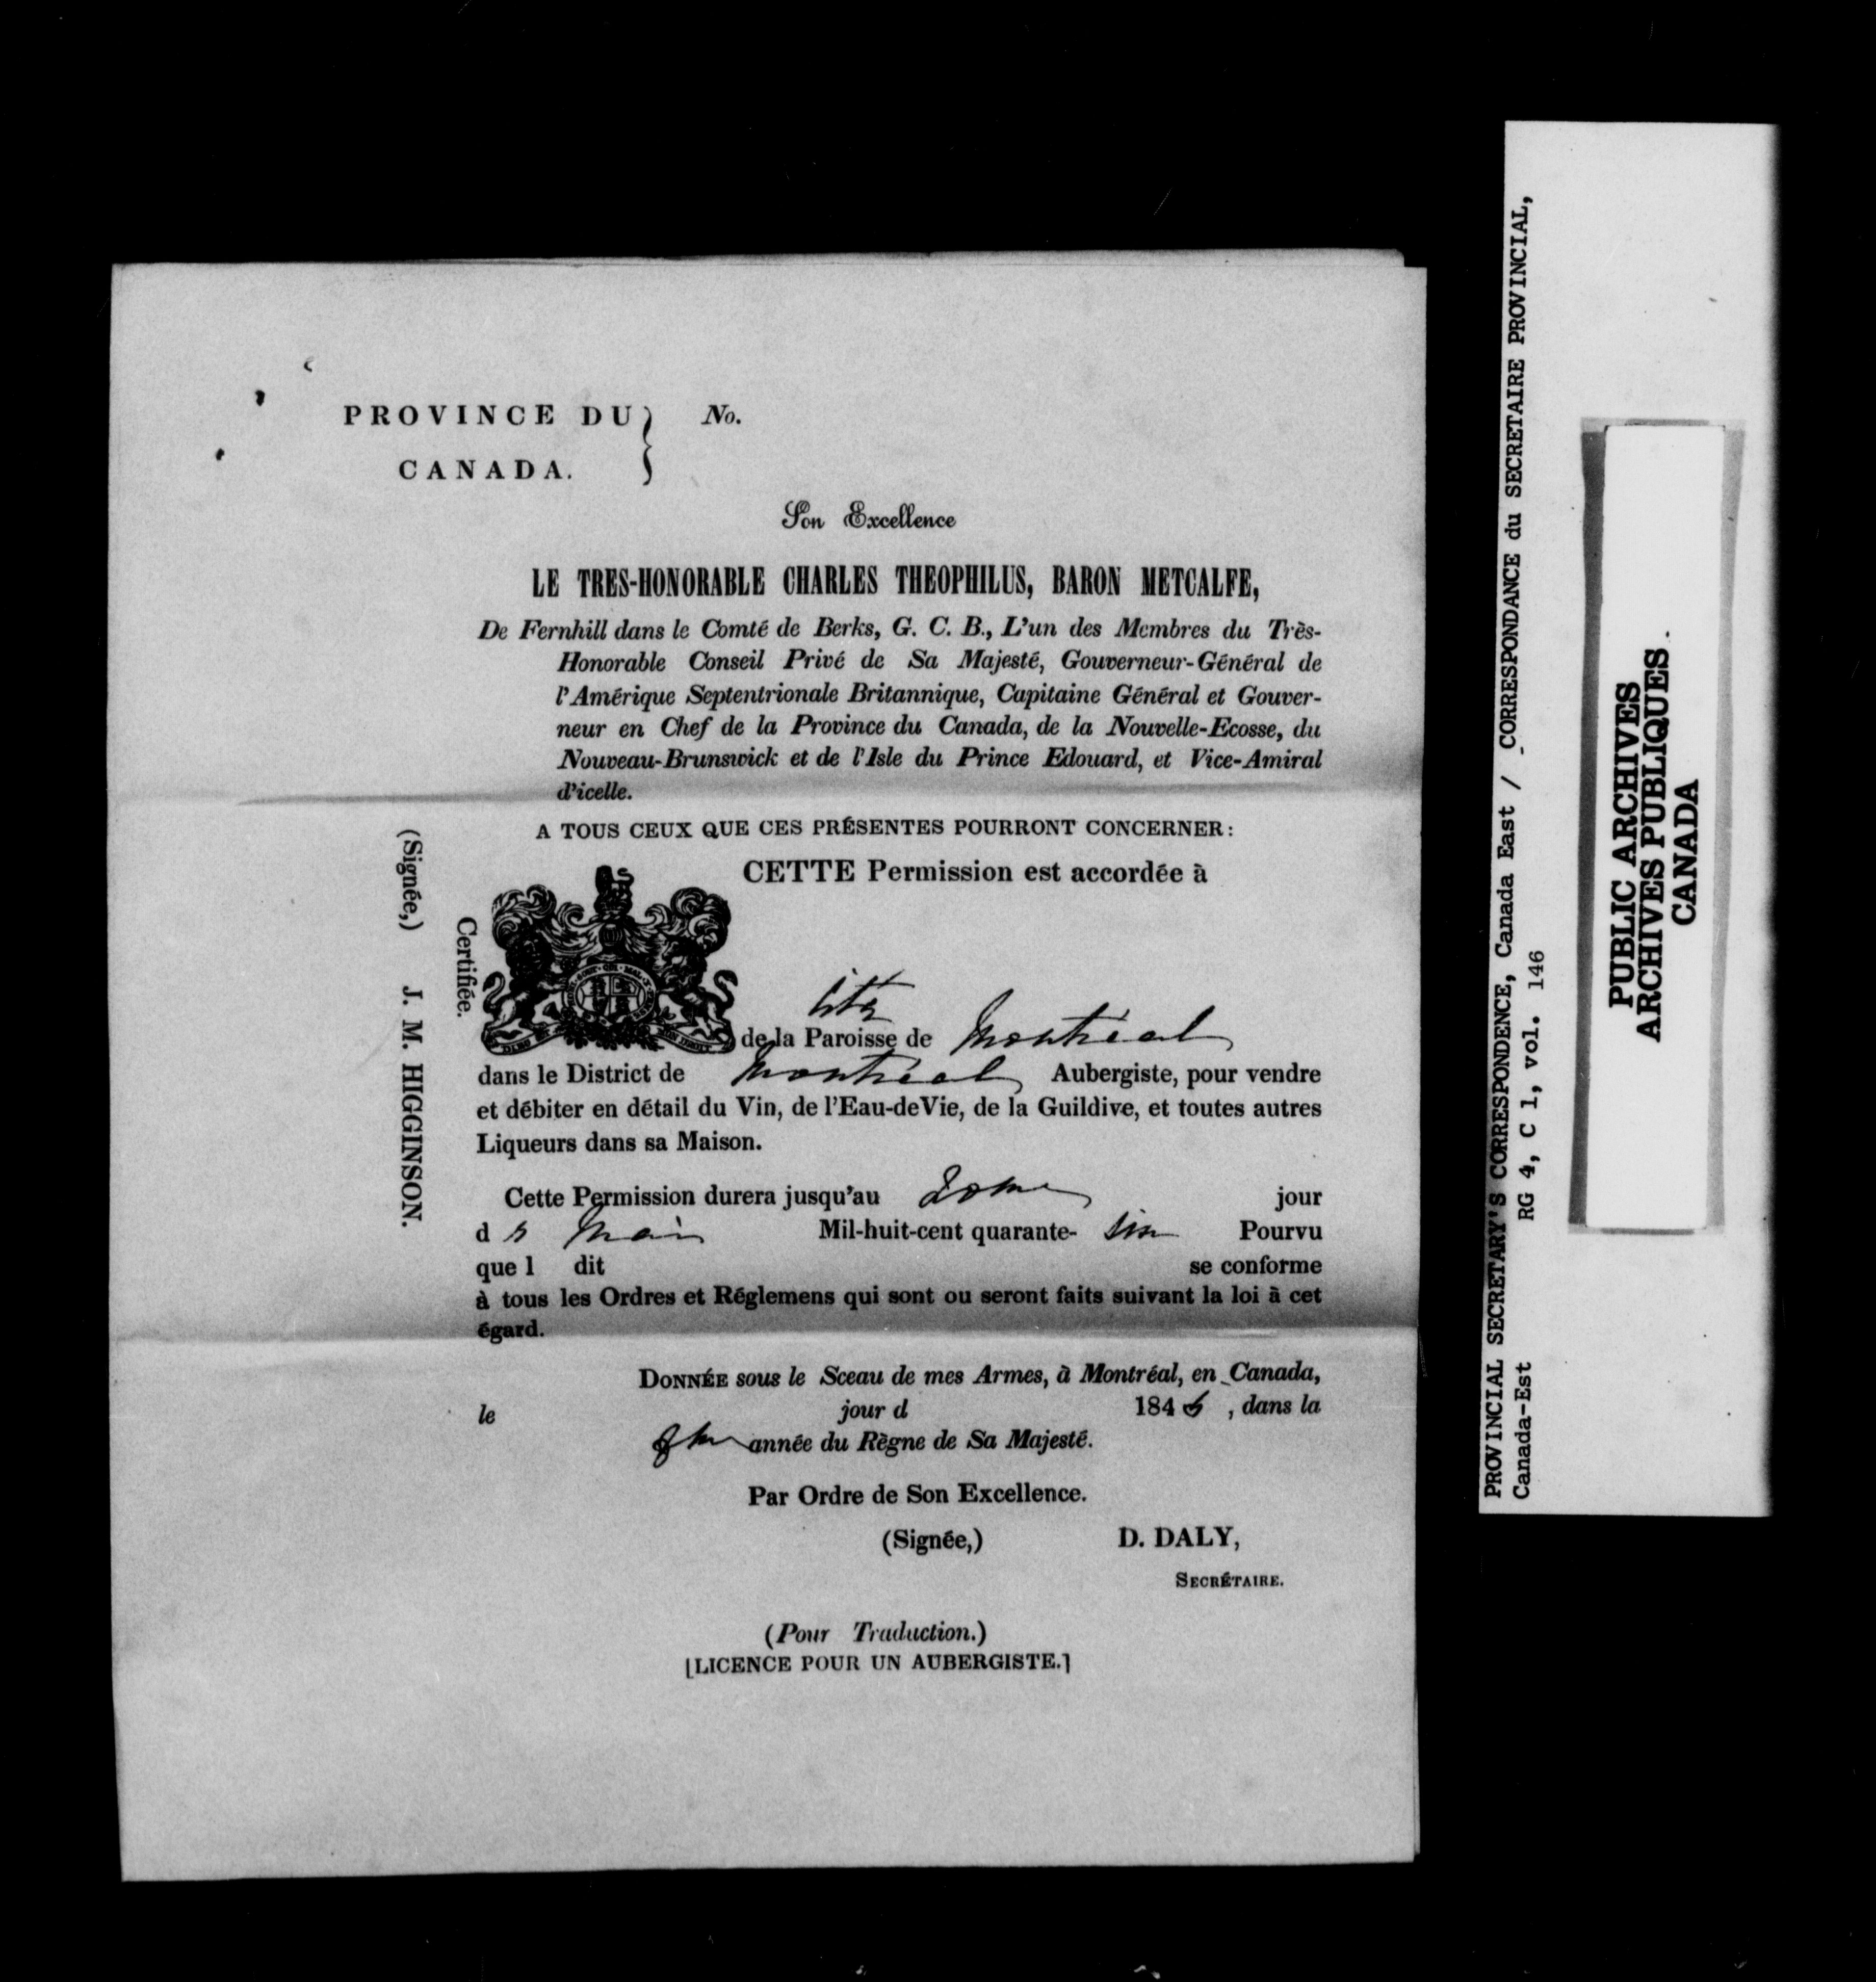 PROVINCE DU } No.
CANADA.
Son Excellence
LE TRES-HONORABLE CHARLES THEOPHILUS, BARON METCALFE,
De Fernhill dans le Comté de Berks, G. C. B., L'un des Membres du Très-
Honorable Conseil Privé de Sa Majesté, Gouverneur-Général de
l'Amérique Septentrionale Britannique, Capitaine Général et Gouver-
neur en Chef de la Province du Canada, de la Nouvelle-Ecosse, du
Nouveau-Brunswick et de l'Isle du Prince Edouard, et Vice-Amiral
d'icelle.
A TOUS CEUX QUE CES PRÉSENTES POURRONT CONCERNER:
CETTE Permission est accordée à
de la Paroisse de Montréal
dans le District de Montréal Aubergiste, pour vendre
et débiter en détail du Vin, de l'Eau-deVie, de la Guildive, et toutes autres
Liqueurs dans sa Maison.
Cette Permission durera jusqu'au 20me jour
d Mai Mil-huit-cent quarante- Pourvu
que l dit se conforme
à tous les Ordres et Réglemens qui sont ou seront faits suivant la loi à cet
égard.
DONNÉE sous le Sceau de mes Armes, à Montréal, en Canada,
le jour d 184 , dans la
année du Règne de Sa Majesté.
Par Ordre de Son Excellence.
(Signée,) D. DALY,
SECRÉTAIRE.
(Pour Traduction.)
[LICENCE POUR UN AUBERGISTE.]
Certifiée.
(Signée,) J. M. HIGGINSON.
PROVINCIAL SECRETARY'S CORRESPONDENCE, Canada East / CORRESPONDANCE du SECRETAIRE PROVINCIAL,
Canada-Est RG 4, C 1, vol. 146
PUBLIC ARCHIVES
ARCHIVES PUBLIQUES
CANADA